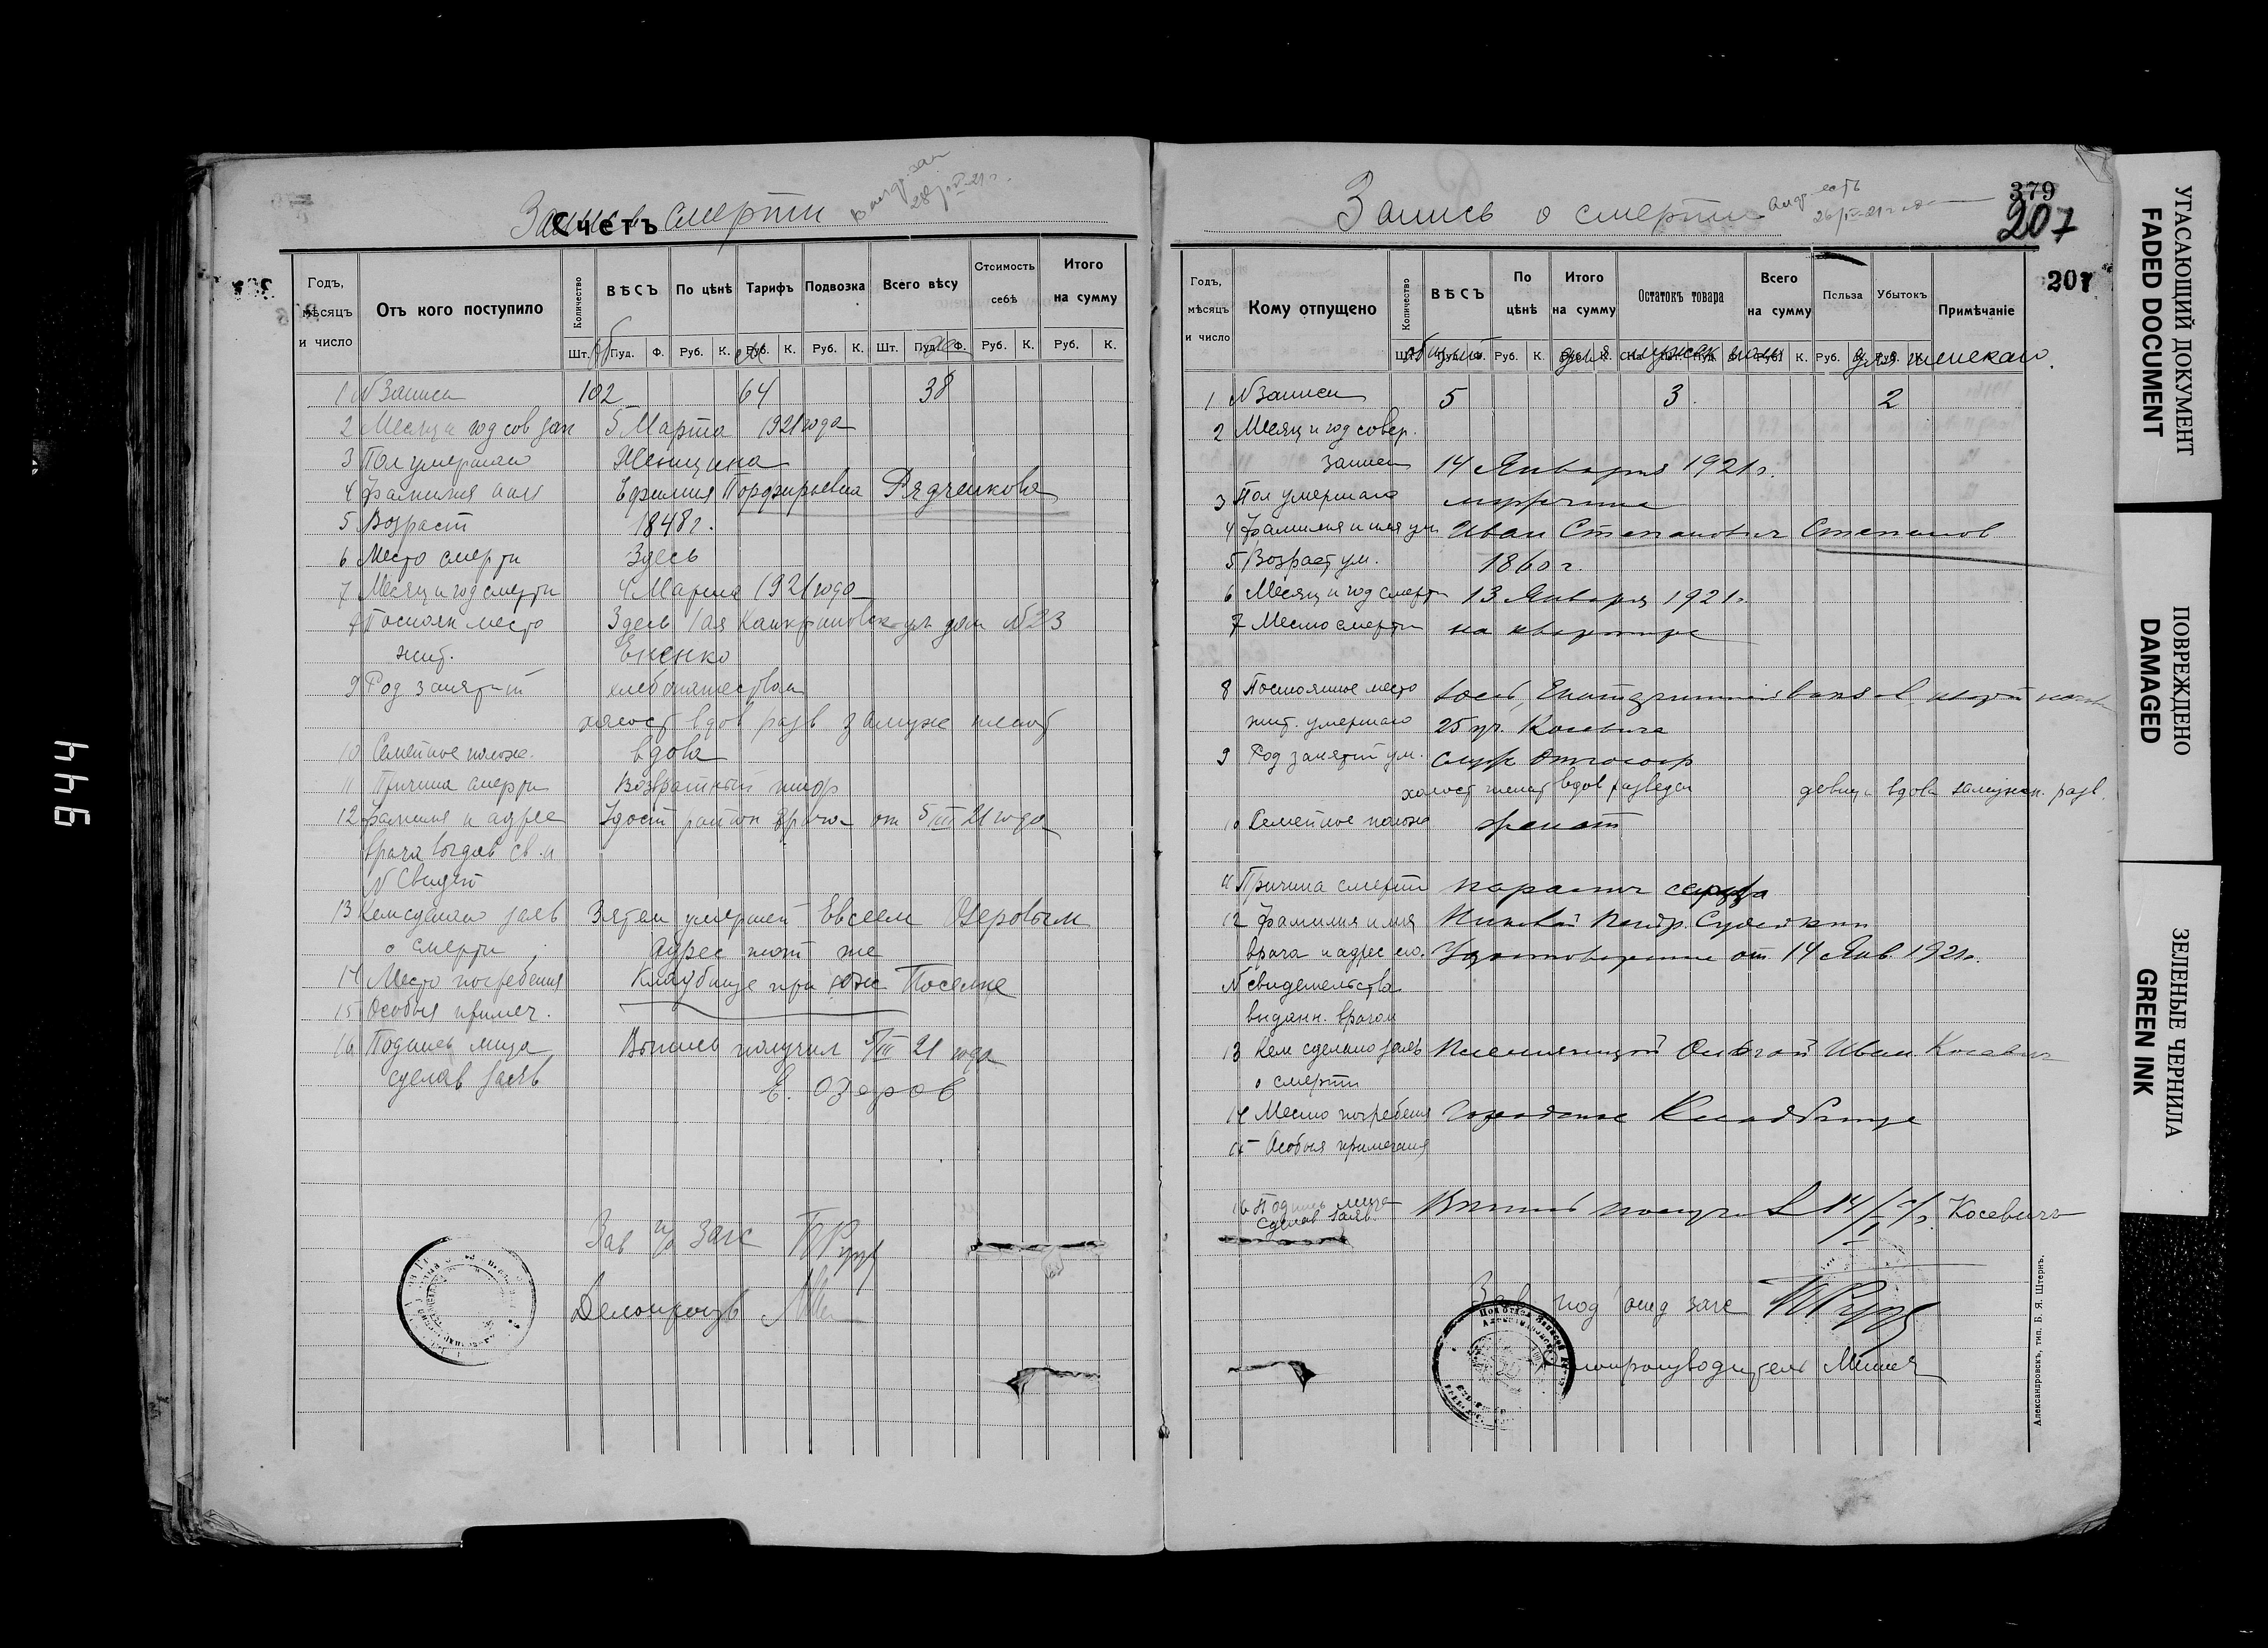 Запись о смерти
Счетъ
Годъ, мѣсяцъ и число
Отъ кого поступило
Количество
ВѢСЪ
По цѣнѣ
Тарифъ
Подвозка
Всего вѣсу
Стоимость себѣ
Итого на сумму
Шт. Пуд. Ф. Руб. К. Руб. К. Руб. К. Шт. Пуд. Ф. Руб. К. Руб. К.
1 N Записи 102 64 38
2 Месяц и год сов зап 5 Марта 1921 года
3 Пол умершаго Женщина
4 Фамилия имя Ефимия Порфирьевна Рядченкова
5 Возраст 1848 г.
6 Место смерти Здесь
7 Месяц и год смерти 4 Марта 1921 года
Постоян место Здесь 1ая ул дом № 23
жит.
9 Род занятий хлебопашеством
холост вдов разв замуже женат
10 Семейное полож. вдова
11 Причина смерти Возвратный тиф
12 Фамилия и адрес Удост район врача от 5/III 21 года
врача выдав св. и
N Свидет
13 Кем сделано заяв Зятем умершей Евсеем Озеровым
о смерти Адрес тот же
14 Место погребения Кладбище при Южн Поселке
15 Особыя примеч.
16 Подпись лица Выпись получил 5/III 21 года
сделав заяв Е. Озеров
Зав п/о загс
Делопроизв
Запись о смерти
379
207
207
Годъ, мѣсяцъ и число
Кому отпущено
Количество
ВѢСЪ
По цѣнѣ
Итого на сумму
Остатокъ товара
Всего на сумму
Польза
Убытокъ
Примѣчаніе
общий для мужск пола для женскаго
1 N Записи 5 3 2
2 Месяц и год совер.
записи 14 Января 1921 г.
3 Пол умершаго мужчина
4 Фамилия и имя ум Иван Степанович Степанов
5 Возраст ум. 1860 г.
6 Месяц и год смерти 13 Января 1921 г.
7 Место смерти на квартире
8 Постоянное место
жит. умершаго 25 Косевича
9 Род занятий ум.
холост женат вдов разведен девица вдова замужн. разв.
10 Семейное полож женат
11 Причина смерти паралич сердца
12 Фамилия и имя
врача и адрес его. Удостоверение от 14 Янв. 1921 г.
N свидетельства
выданн. врачом
13 Кем сделано заяв Племянницей Ольгой Иван. Косевич
о смерти
14 Место погребения Городское Кладбище
15 Особыя примечания
16 Подпись лица Выпись получ. 14/I Косевич
сделав заяв.
Зав. под отд загс
Делопроизводитель
Александровскъ, тип. Б. Я. Штернъ.
УГАСАЮЩИЙ ДОКУМЕНТ
FADED DOCUMENT
ПОВРЕЖДЕНО
DAMAGED
ЗЕЛЕНЫЕ ЧЕРНИЛА
GREEN INK
944